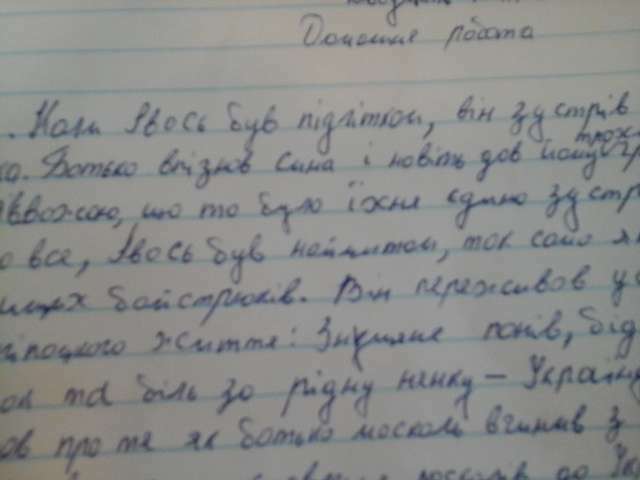 Домашня робота
. Коли Івась був підлітком, він зустрів
трохи
ко. Батько впізнав сина і навіть дав йому гр
вважаю, що то була їхня єдина зустр
о все, Івась був наймитом, так само як
інших байстрюків. Він переживав ус
кріпацького життя: Знущання панів, бід
ок та біль за рідну неньку – Україну
ов про те як батько москаль вчинив з
до Ук